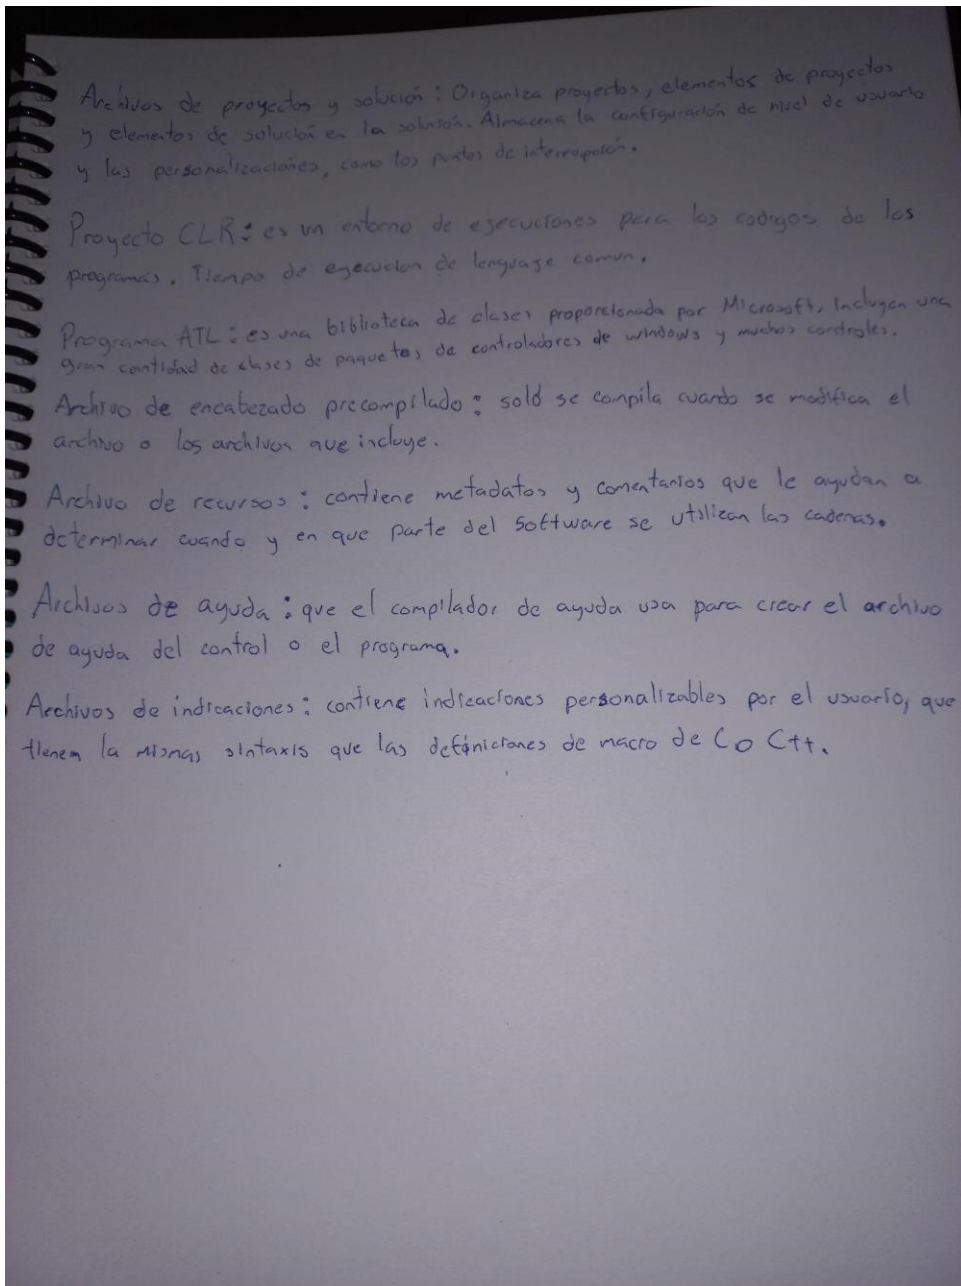 Archivos de proyectos y solución: Organiza proyectos, elementos de proyectos
y elementos de solución en la solución. Almacena la configuración de nivel de usuario
y las personalizaciones, como los puntos de interrupción.
Proyecto CLR: es un entorno de ejecuciones para los codigos de los
programas. Tiempo de ejecucion de lenguaje comun.
Programa ATL: es una biblioteca de clases proporcionada por Microsoft, Incluyen una
gran cantidad de clases de paquetes de controladores de windows y muchos controles.
Archivo de encabezado precompilado: soló se compila cuando se modifica el
archivo o los archivos que incluye.
Archivo de recursos: contiene metadatos y comentarios que le ayudan a
determinar cuando y en que parte del Software se utilizan las cadenas.
Archivos de ayuda: que el compilador de ayuda usa para crear el archivo
de ayuda del control o el programa.
Archivos de indicaciones: contiene indicaciones personalizables por el usuario, que
tienen la mismas sintaxis que las definiciones de macro de C o C++.